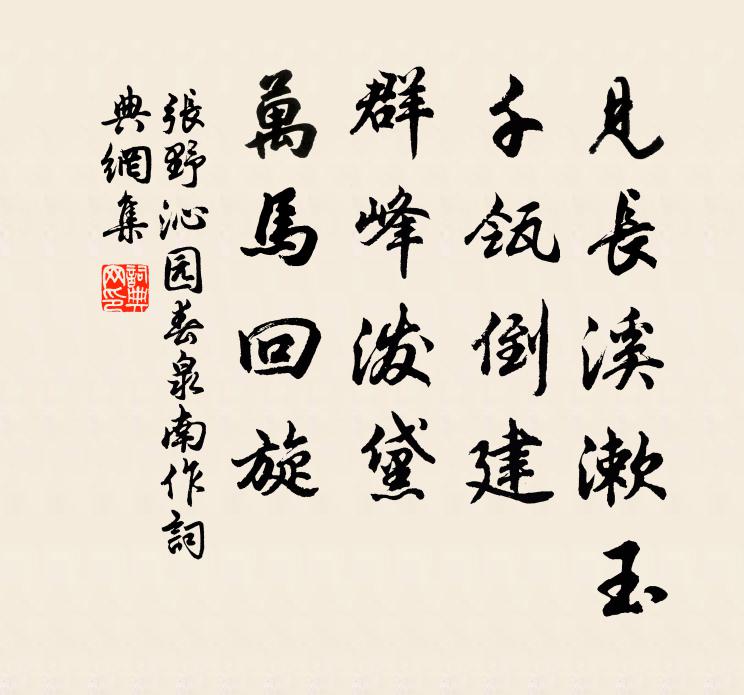 見長溪漱玉
千瓴倒建
群峰潑黛
萬馬回旋
張野沁园春泉南作詞
典網集
詞典
网印